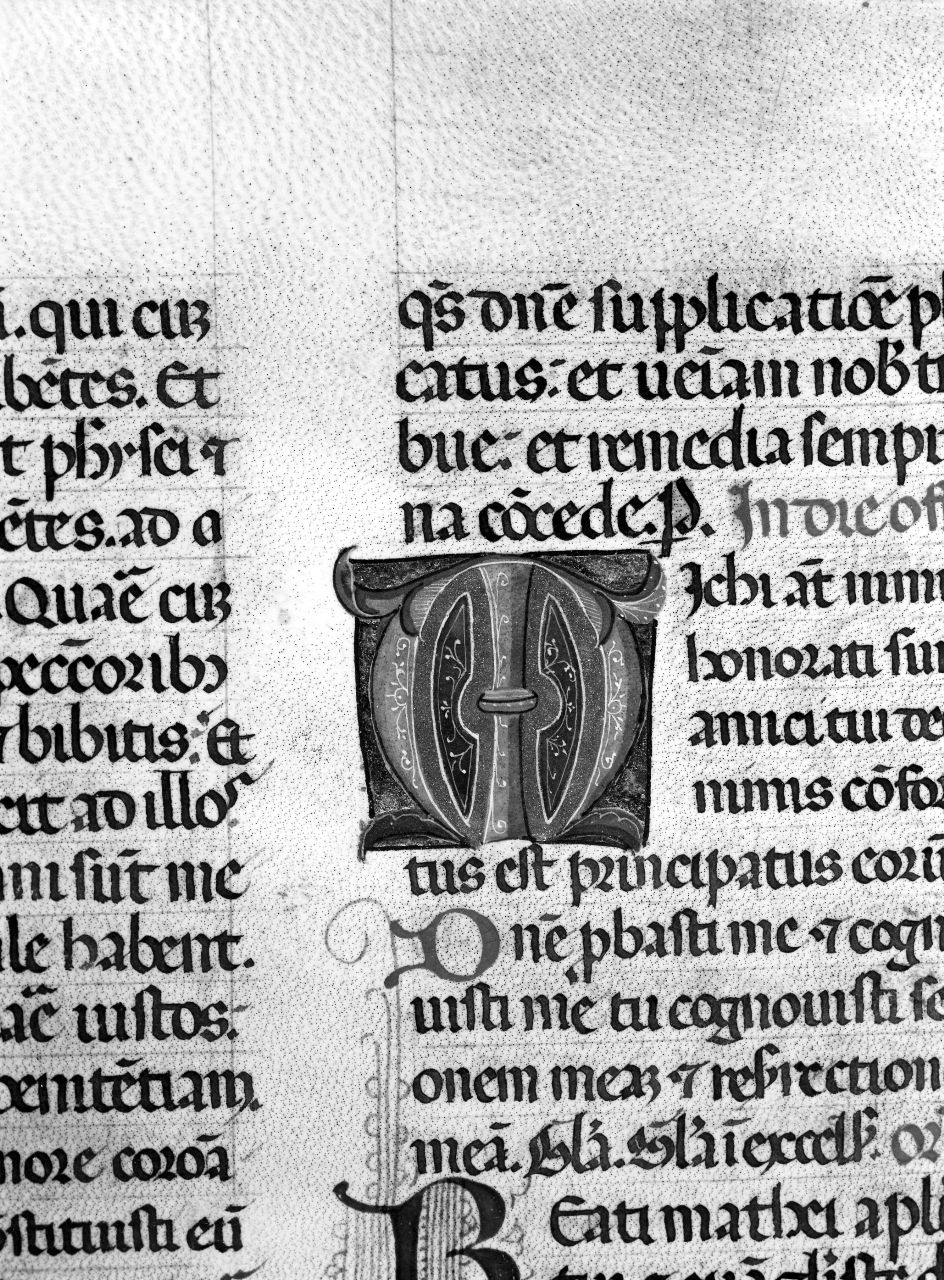 qui cuꝫ
bētes. Et
t phy̅sci ⁊
ētes. ad a
. Quaē cuꝫ
peccōribꝫ
bibitis: Et
cit ad illos
ni sūt me
le habent.
ac̄ iustos:
penitētiam.
more coroā
stituisti eū
qs̄ dn̄e supplicatiōe pl
catus: et ueīam nob̄ t
bue: et remedia sempi
na cōcede. P. In die
Michi āt nim
honorati sun
amici tui de
nimis cōfor
tus est principatus eorū
Dn̄e pbasti me ⁊ cogn
uisti me tu cognouisti se
onem meaꝫ ⁊ resrrection
meā. Gl̄a. Gl̄a ī excels. or
Beati mathei apl